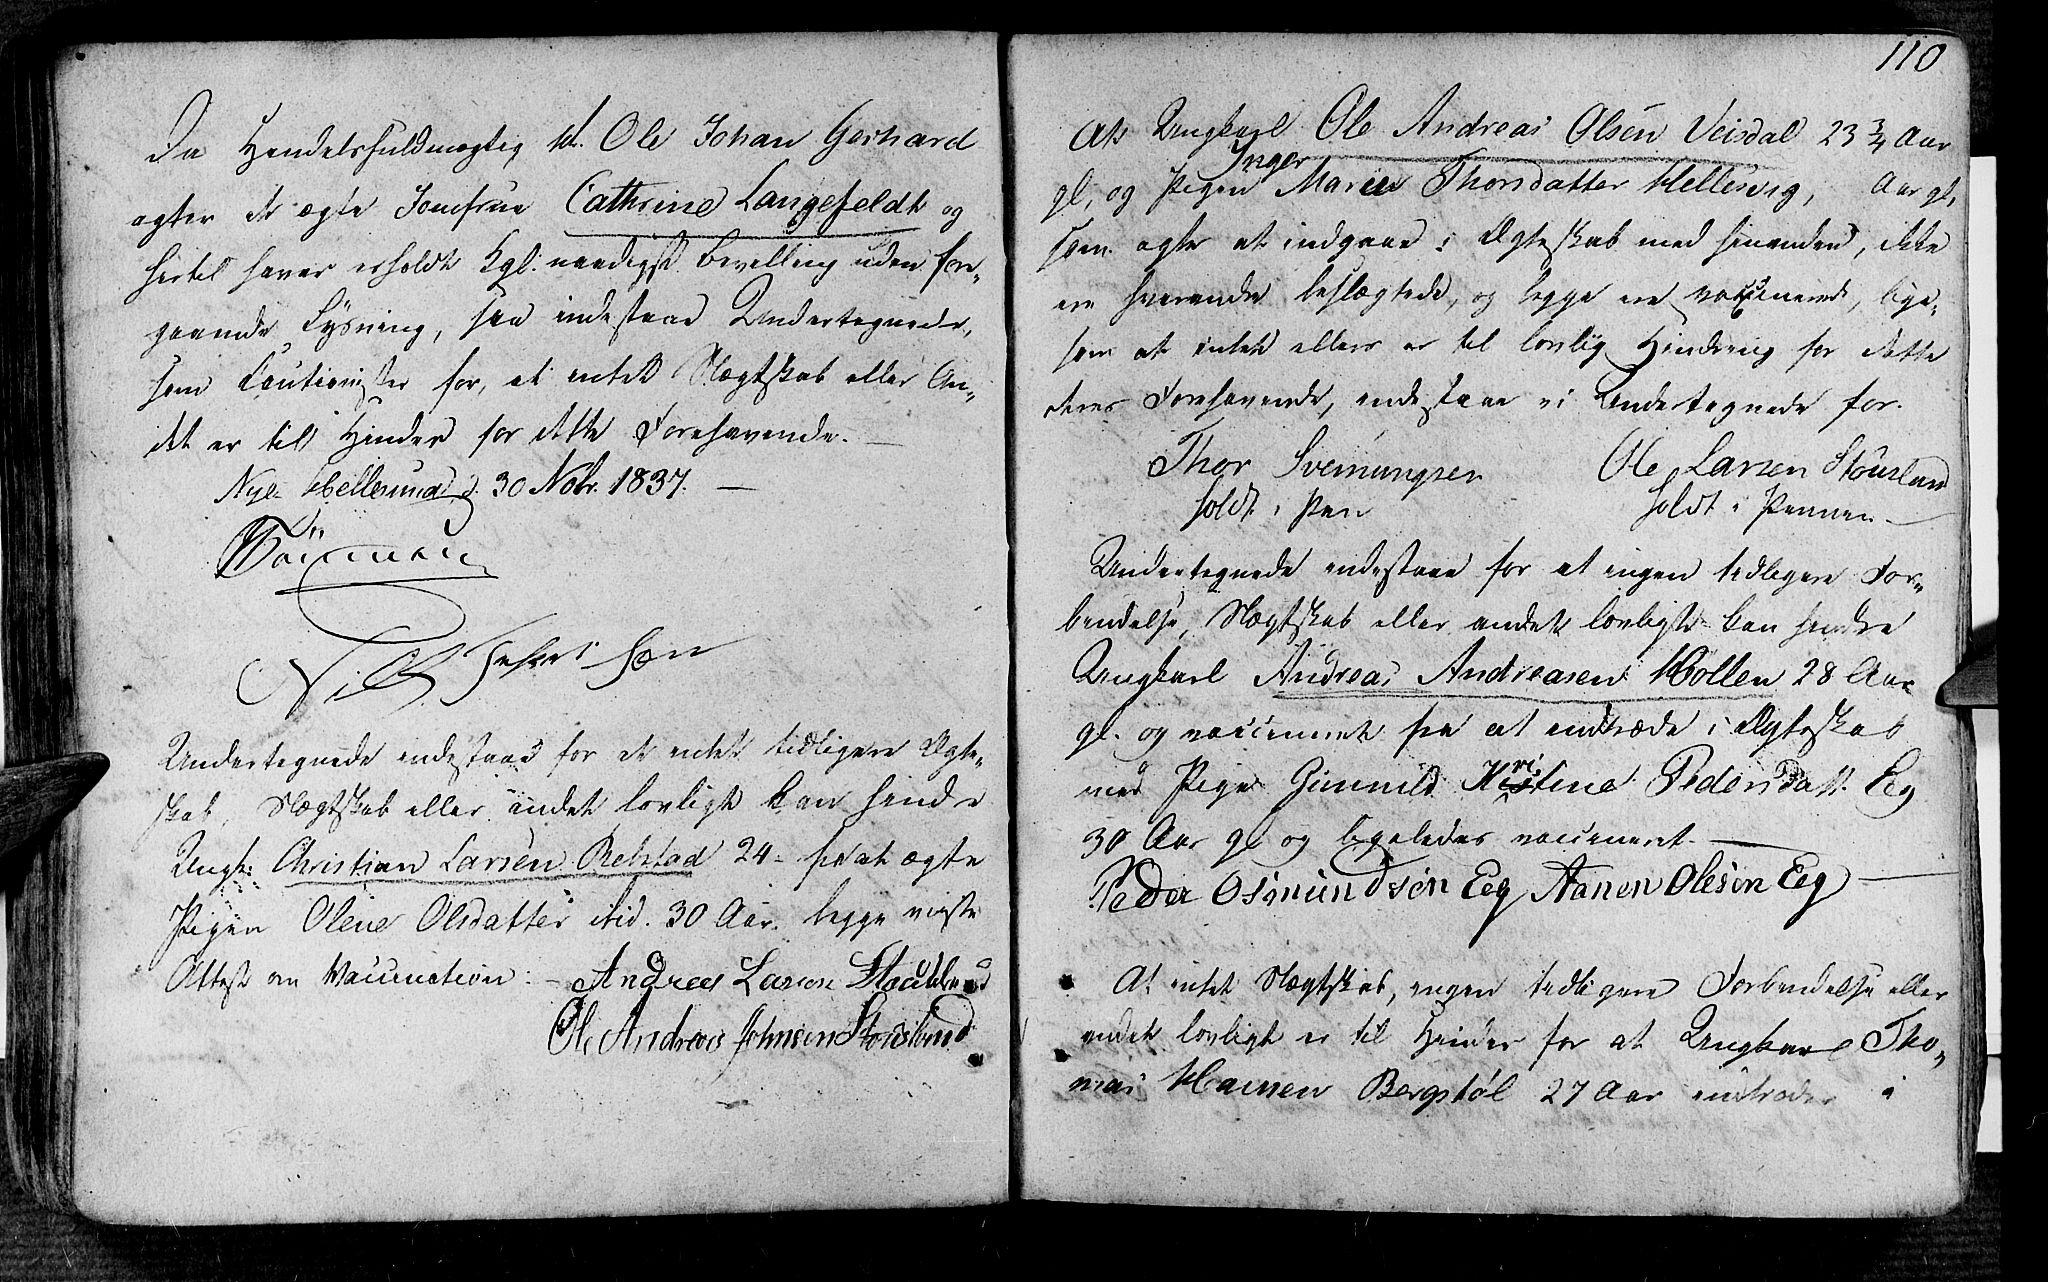 Da Handelsfuldmægtig Hr. Ole Johan Gerhard
agter at ægte Jomfrue Cathrine Langefeldt og
hertil haver erholdt Kgl. naadigst Bevilling uden fore-
gaaende Lysning, saa indestaae Undertegnede,
som Cautionister for, at intet Slægtskab eller An-
det er til Hinder for dette Forehavende. —
Nye-Hellesund d. 30 Nobr. 1837. —
Niels
Undertegnede indestaae for at intet tidligere Ægte-
skab, Slægtskab eller andet lovligt kan hindre
Ungk: Christian Larsen Refstad 24- fra at ægte
Pigen Olene Olsdatter ibid. 30 Aar. begge viiste
Attest om Vaccination. — Andreas Larsen
Ole Andreas Johnsen
110
At Ungkarl Ole Andreas Olsen Veisdal 23 3/4 Aar
gl, og Pigen Inger Marie Thorsdatter Hellevig, Aar gl,
som agte at indgaae i Ægteskab med hinanden, ikke
ere hverandre beslægtede, og begge ere vaccinerede, lige-
som at intet ellers er til lovlig Hindring for dette
deres Forehavende, indestaae vi Undertegnede for.
Thor Svennungsen Ole Larsen
holdt i Pen holdt i Pennen —
Undertegnede indestaae for at ingen tidligere For-
bindelse, Slægtskab eller andet lovligt kan hindre
Ungkarl Andreas Andreasen Möllen 28 Aar
gl. og vaccineret fra at indtræde i Ægteskab
med Pige Gunnild Kristine Pedersdatt. Eeg
30 Aar gl og ligeledes vaccineret. —
Peder Osmundsen Eeg Aanen Olesen Eeg —
At intet Slægtskab, ingen tidligere Forbindelse eller
andet lovligt er til Hinder for at Ungkarl Tho-
mas Hansen Bergstøl 27 Aar indtræder i